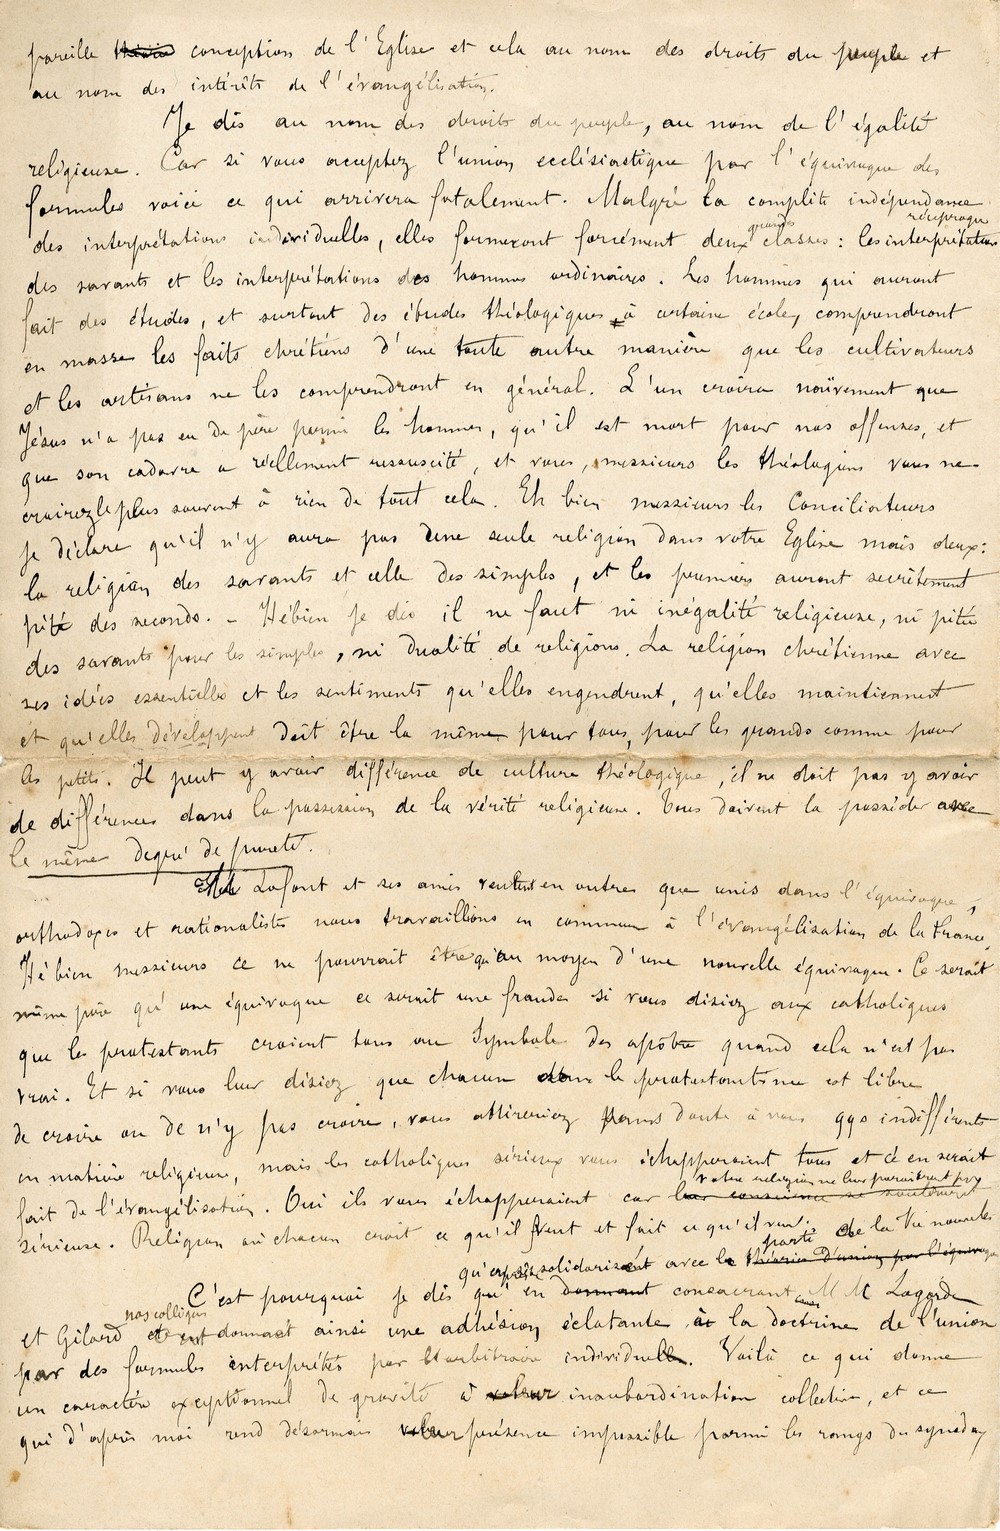 pareille conception de l'Eglise et cela au nom des droits du peuple et
au nom des intérêts de l'évangélisation.
Je dis au nom des droits du peuple, au nom de l'égalité
religieuse. Car si vous acceptez l'union ecclésiastique par l'équivoque des
formules voici ce qui arrivera fatalement. Malgré la complète indépendance
réciproque
des interprétations individuelles, elles formeront forcément deux grandes classes : les interprétations
des savants et les interprétations des hommes ordinaires. Les hommes qui auront
fait des études, et surtout des études théologiques à certaine école, comprendront
en masse les faits chrétiens d'une toute autre manière que les cultivateurs
et les artisans ne les comprendront en général. L'un croira naïvement que
Jésus n'a pas eu de père parmi les hommes, qu'il est mort pour nos offenses, et
que son cadavre a réellement ressuscité, et vous, messieurs les théologiens vous ne
croirez le plus souvent à rien de tout cela. Eh bien messieurs les Conciliateurs
je déclare qu'il n'y aura pas une seule religion dans votre Eglise mais deux :
la religion des savants et celle des simples, et les premiers auront secrètement
pitié des seconds. - Hébien je dis il ne faut ni inégalité religieuse, ni pitié
des savants pour les simples, ni dualité de religions. La religion chrétienne avec
ses idées essentielles et les sentiments qu'elles engendrent, qu'elles maintiennent
et qu'elles développent doit être la même pour tous, pour les grands comme pour
les petits. Il peut y avoir différence de culture théologique, il ne doit pas y avoir
de différences dans la possession de la vérité religieuse. Tous doivent la posséder avec
le même degré de pureté.
Lafont et ses amis veulent en outres que unis dans l'équivoque,
orthodoxes et rationalistes nous travaillions en commun à l'évangélisation de la France.
Hé bien messieurs ce ne pourrait être qu'au moyen d'une nouvelle équivoque. Ce serait
même pire qu'une équivoque ce serait une fraude si vous disiez aux catholiques
que les protestants croient tous au Symbole des apôtre quand cela n'est pas
vrai. Et si vous leur disiez que chacun dans le protestantisme est libre
de croire ou de n'y pas croire, vous attireriez sans doute à vous qqs indifférents
en matière religieuse, mais les catholiques sérieux vous échapperaient tous et c'en serait
fait de l'évangélisation. Oui ils vous échapperaient car votre religion ne leur paraîtrait pas
sérieuse. Religion où chacun croit ce qu'il veut et fait ce qu'il veut.
qu'en se solidarisant avec le parti de la Vie nouvelle
C'est pourquoi je dis qu'en consacrant MM Lagarde
et Gilard nos collègues ont donné ainsi une adhésion éclatante à la doctrine de l'union
par des formules interprétés par l'arbitraire individuelle. Voilà ce qui donne
un caractère exceptionnel de gravité à leur insubordination collective, et ce
qui d'après moi rend désormais leur présence impossible parmi les rangs du synode